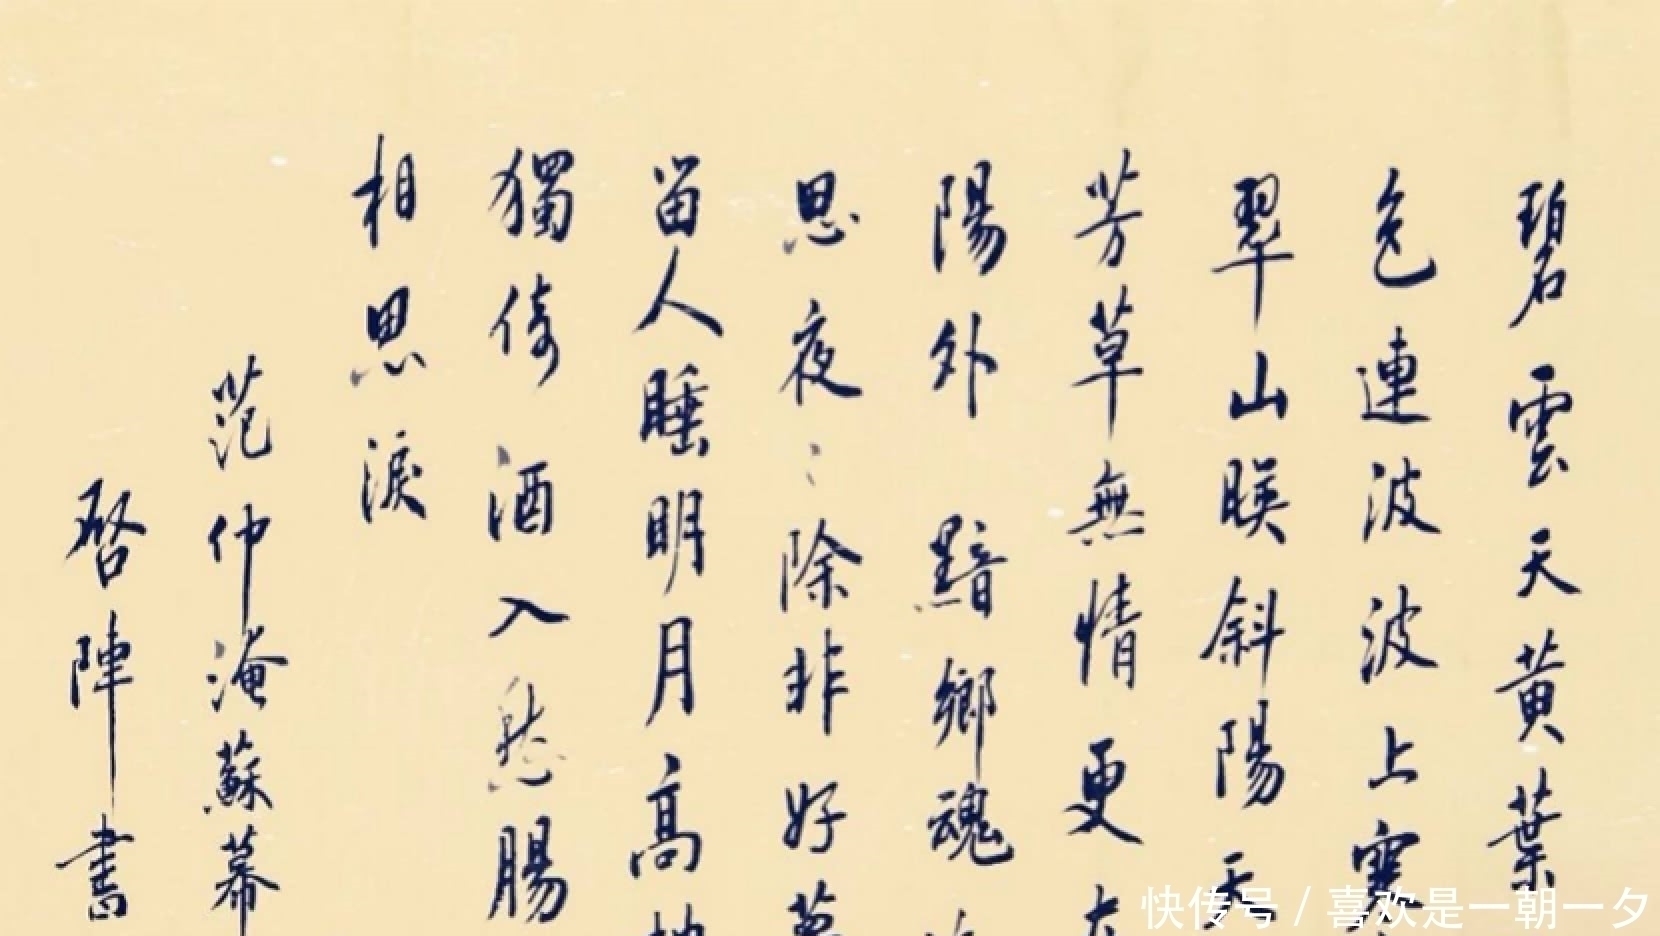 碧雲天黃葉
色連波波上寒
翠山暎斜陽天
芳草無情更
陽外 黯鄉魂
思夜〻除非好夢
留人睡明月高
獨倚 酒入愁腸
相思淚
范仲淹蘇幕
啓陣書
快传号 / 喜欢是一朝一夕